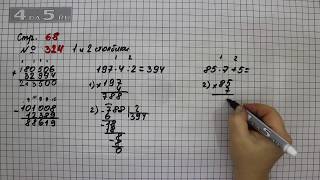 4DA5.RU
Стр. 68
№ 324 1 и 2 столбики
+180 506
32 994
213500
-101 008
12 389
88619
1 2
197·4:2=394
1) ×197
4
788
2) -788|2
6 394
-18
18
-8
8
0
1 2
85·7+5=
1) ×85
7